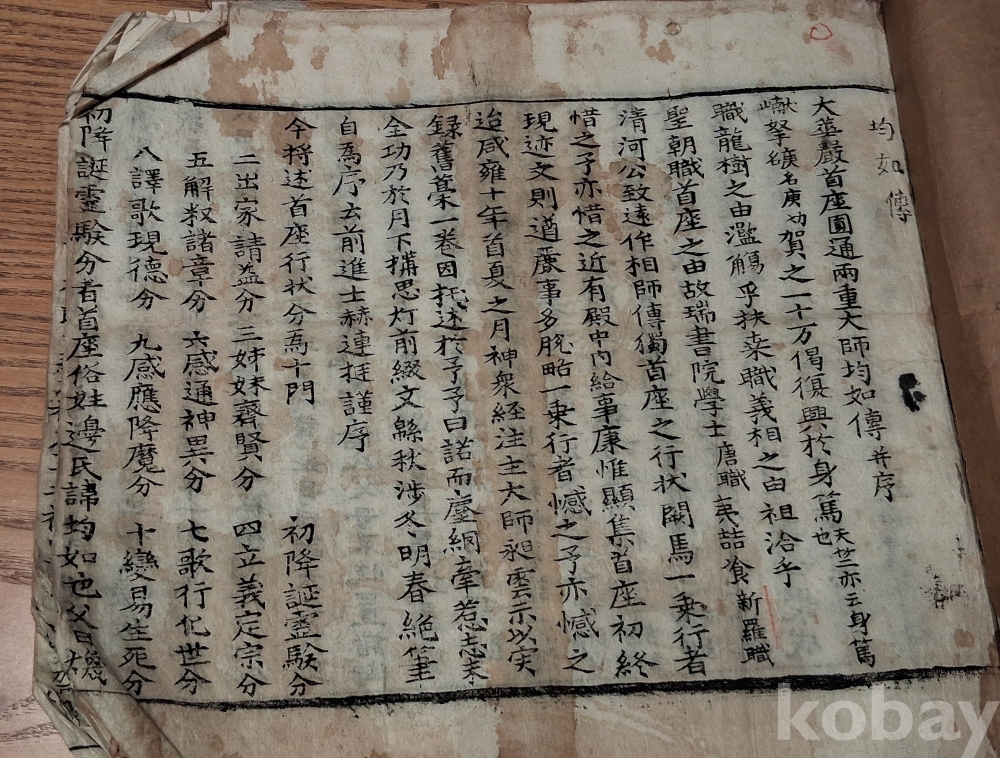 均如傳
大華嚴首座圓通兩重大師均如傳并序
嶽孥纊名庚切賀之一十万偈復興於身篤天竺亦云身篤也
職龍樹之由濫觴乎扶桒職義相之由祖洽乎
聖朝職首座之由故瑞書院學士唐職夷喆湌新羅職
清河公致遠作相師傳獨首座之行狀闕焉一乗行者
惜之予亦惜之近有殿中內給事康惟顯集首座初終
現迹文則遒麗事多脫略一乗行者憾之予亦憾之
迨咸雍十年首夏之月神衆経注主大師昶雲示以实
録舊藁一卷因托述於予予曰諾而塵網牽惹志未
全功乃於月下搆思灯前綴文緜秋涉冬冬明春絶筆
自為序云前進士赫連挺謹序
今将述首座行状分為十門 初降誕霊験分
二出家請益分 三姊妹齊賢分 四立義㝎宗分
五解釈諸章分 六感通神異分 七歌行化世分
八譯歌現德分 九感應降魔分 十變易生死分
初降誕霊験分者首座俗姓邊氏諱均如也父曰
kobay